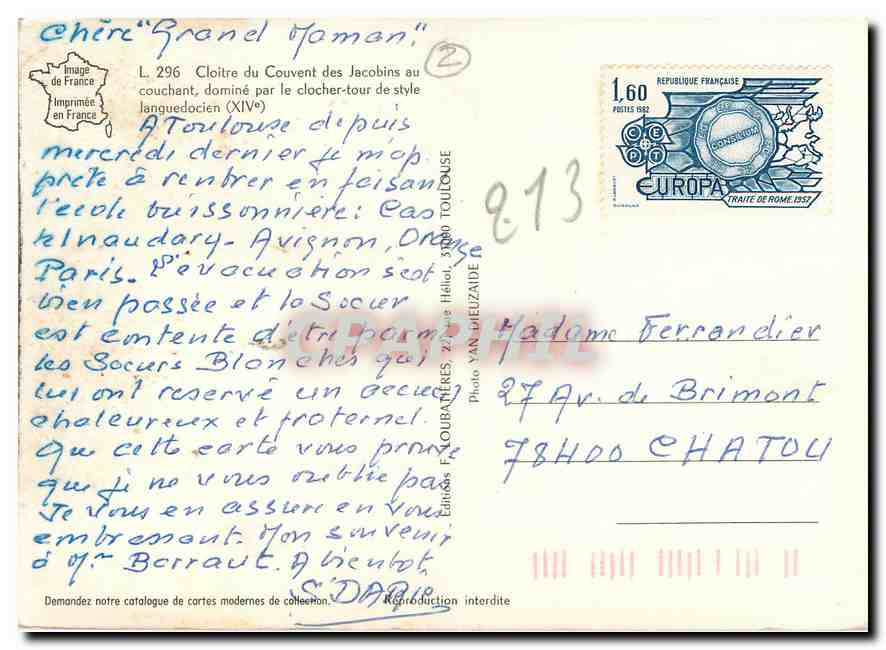 Chère "Grand Maman."
2
Image
de France
Imprimée
en France
L. 296 Cloître du Couvent des Jacobins au
couchant, dominé par le clocher-tour de style
languedocien (XIVe)
A Toulouse depuis
mercredi dernier je m'ap
prête à rentrer en faisant
l'école buissonnière : Cas
telnaudary - Avignon, Orange
Paris. L'évacuation s'est
bien passée et la Soeur
est contente d'être parmi
les Soeurs Blanches qui
lui ont réservé un accueil
chaleureux et fraternel.
Que cette carte vous prouve
que je ne vous oublie pas
Je vous en assure en vous
embrassant. Mon souvenir
à Mr Barraut. A bientôt
Demandez notre catalogue de cartes modernes de collection.
Reproduction interdite
Editions F. LOUBATIÈRES, rue Héliot, 31000 TOULOUSE
Photo YAN DIEUZAIDE
CPAPHIL
213
1,60
REPUBLIQUE FRANÇAISE
POSTES 1982
CEPT
CONSILIUM
EUROPA
TRAITÉ DE ROME. 1957
Madame Ferrandier
27 Av. de Brimont
78400 CHATOU